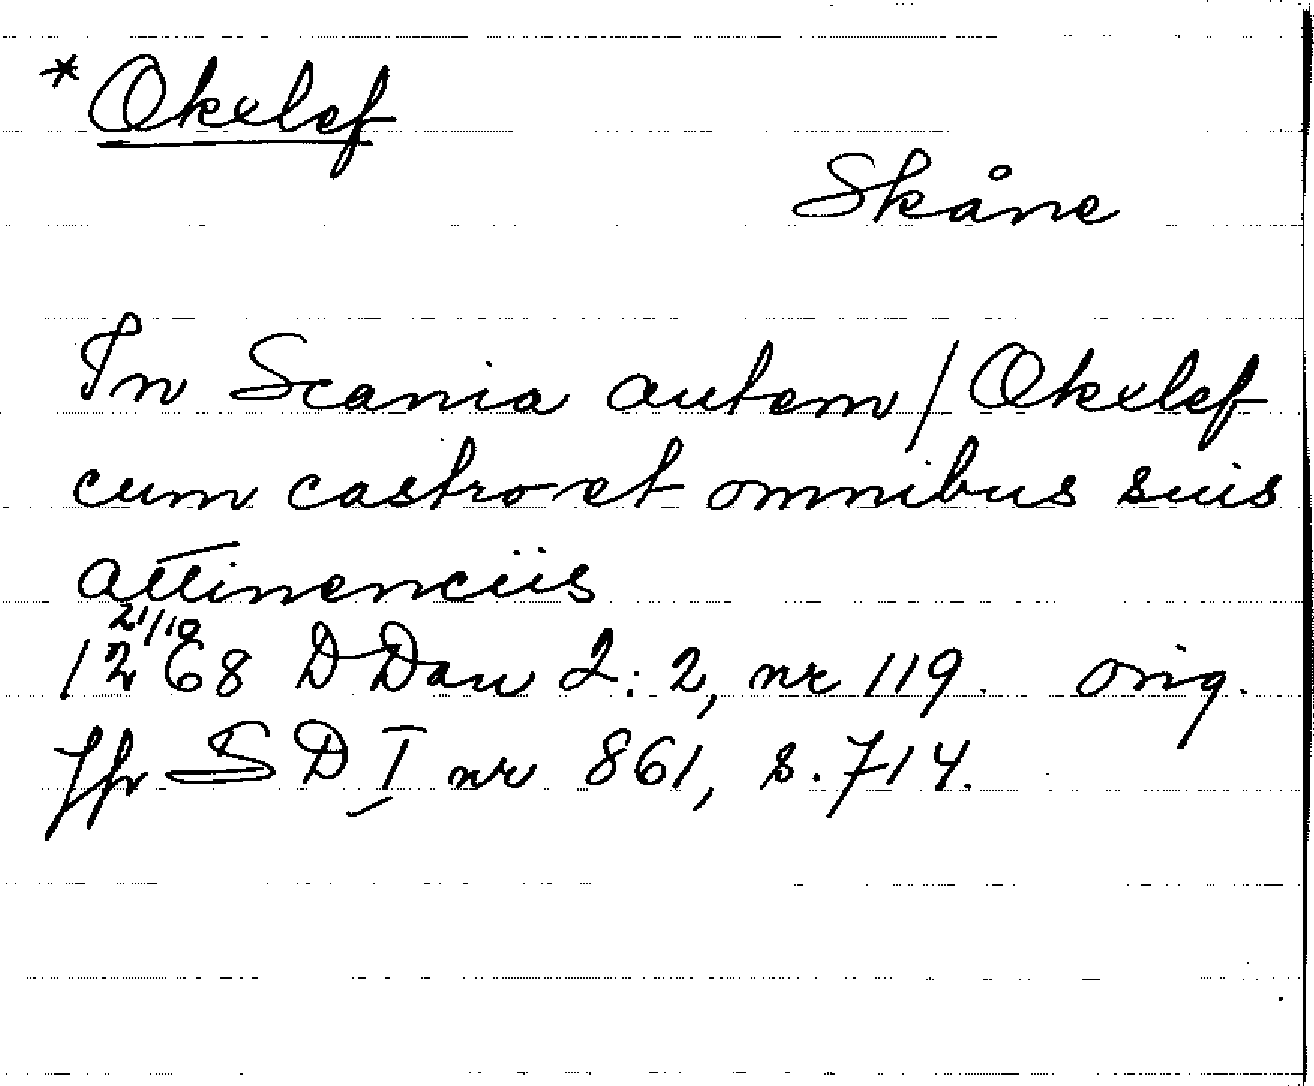 *Okelef
Skåne
In Scania autem / Okelef
cum castro et omnibus suis
attinenciis
21/10
1268 DDan 2:2, nr 119. orig.
Jfr SD I nr 861, s. 714.